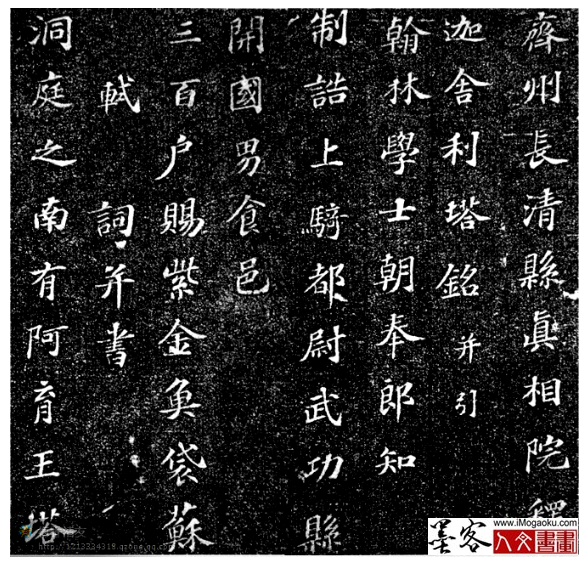 齊州長清縣眞相院釋
迦舍利塔銘并引
翰林學士朝奉郎知
制誥上騎都尉武功縣
開國男食邑
三百户賜紫金魚袋蘇
軾 詞并書
洞庭之南有阿育王塔
墨客
www.iMogaoku.com
人文書畫